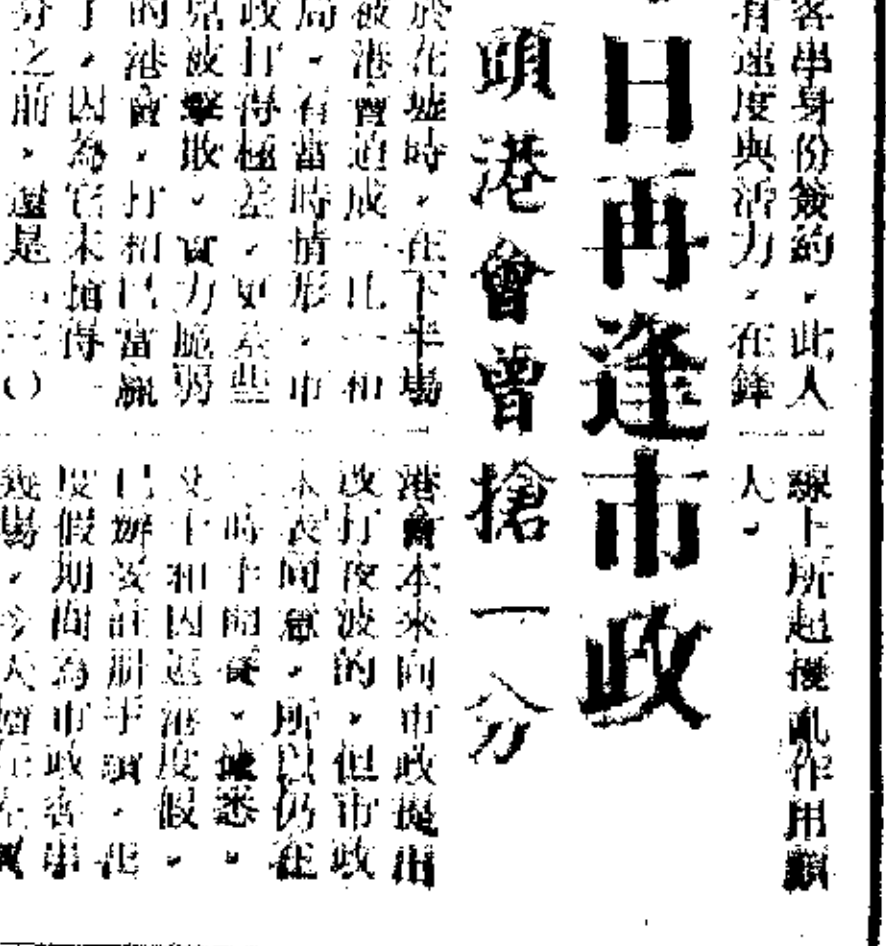 客串身份簽約，此人
有速度與活力，在鋒
線上所起擾亂作用頗
大。
日再逢市政
頭港會曾搶一分
於花墟時，在下半場
被港會迫成一比一和
局，看當時情形，市
政打得極差，更差些
見被擊敗，實力脆弱
的港會，打和已當贏
了，因為它未搶得一
分之前，還是
港會本來向市政提出
改打夜波的，但市政
未表同意，所以仍在
三時半開賽。據悉，
十和因返港度假，
已辦妥註冊手續，但
度假期間為市政客串
幾場，今天